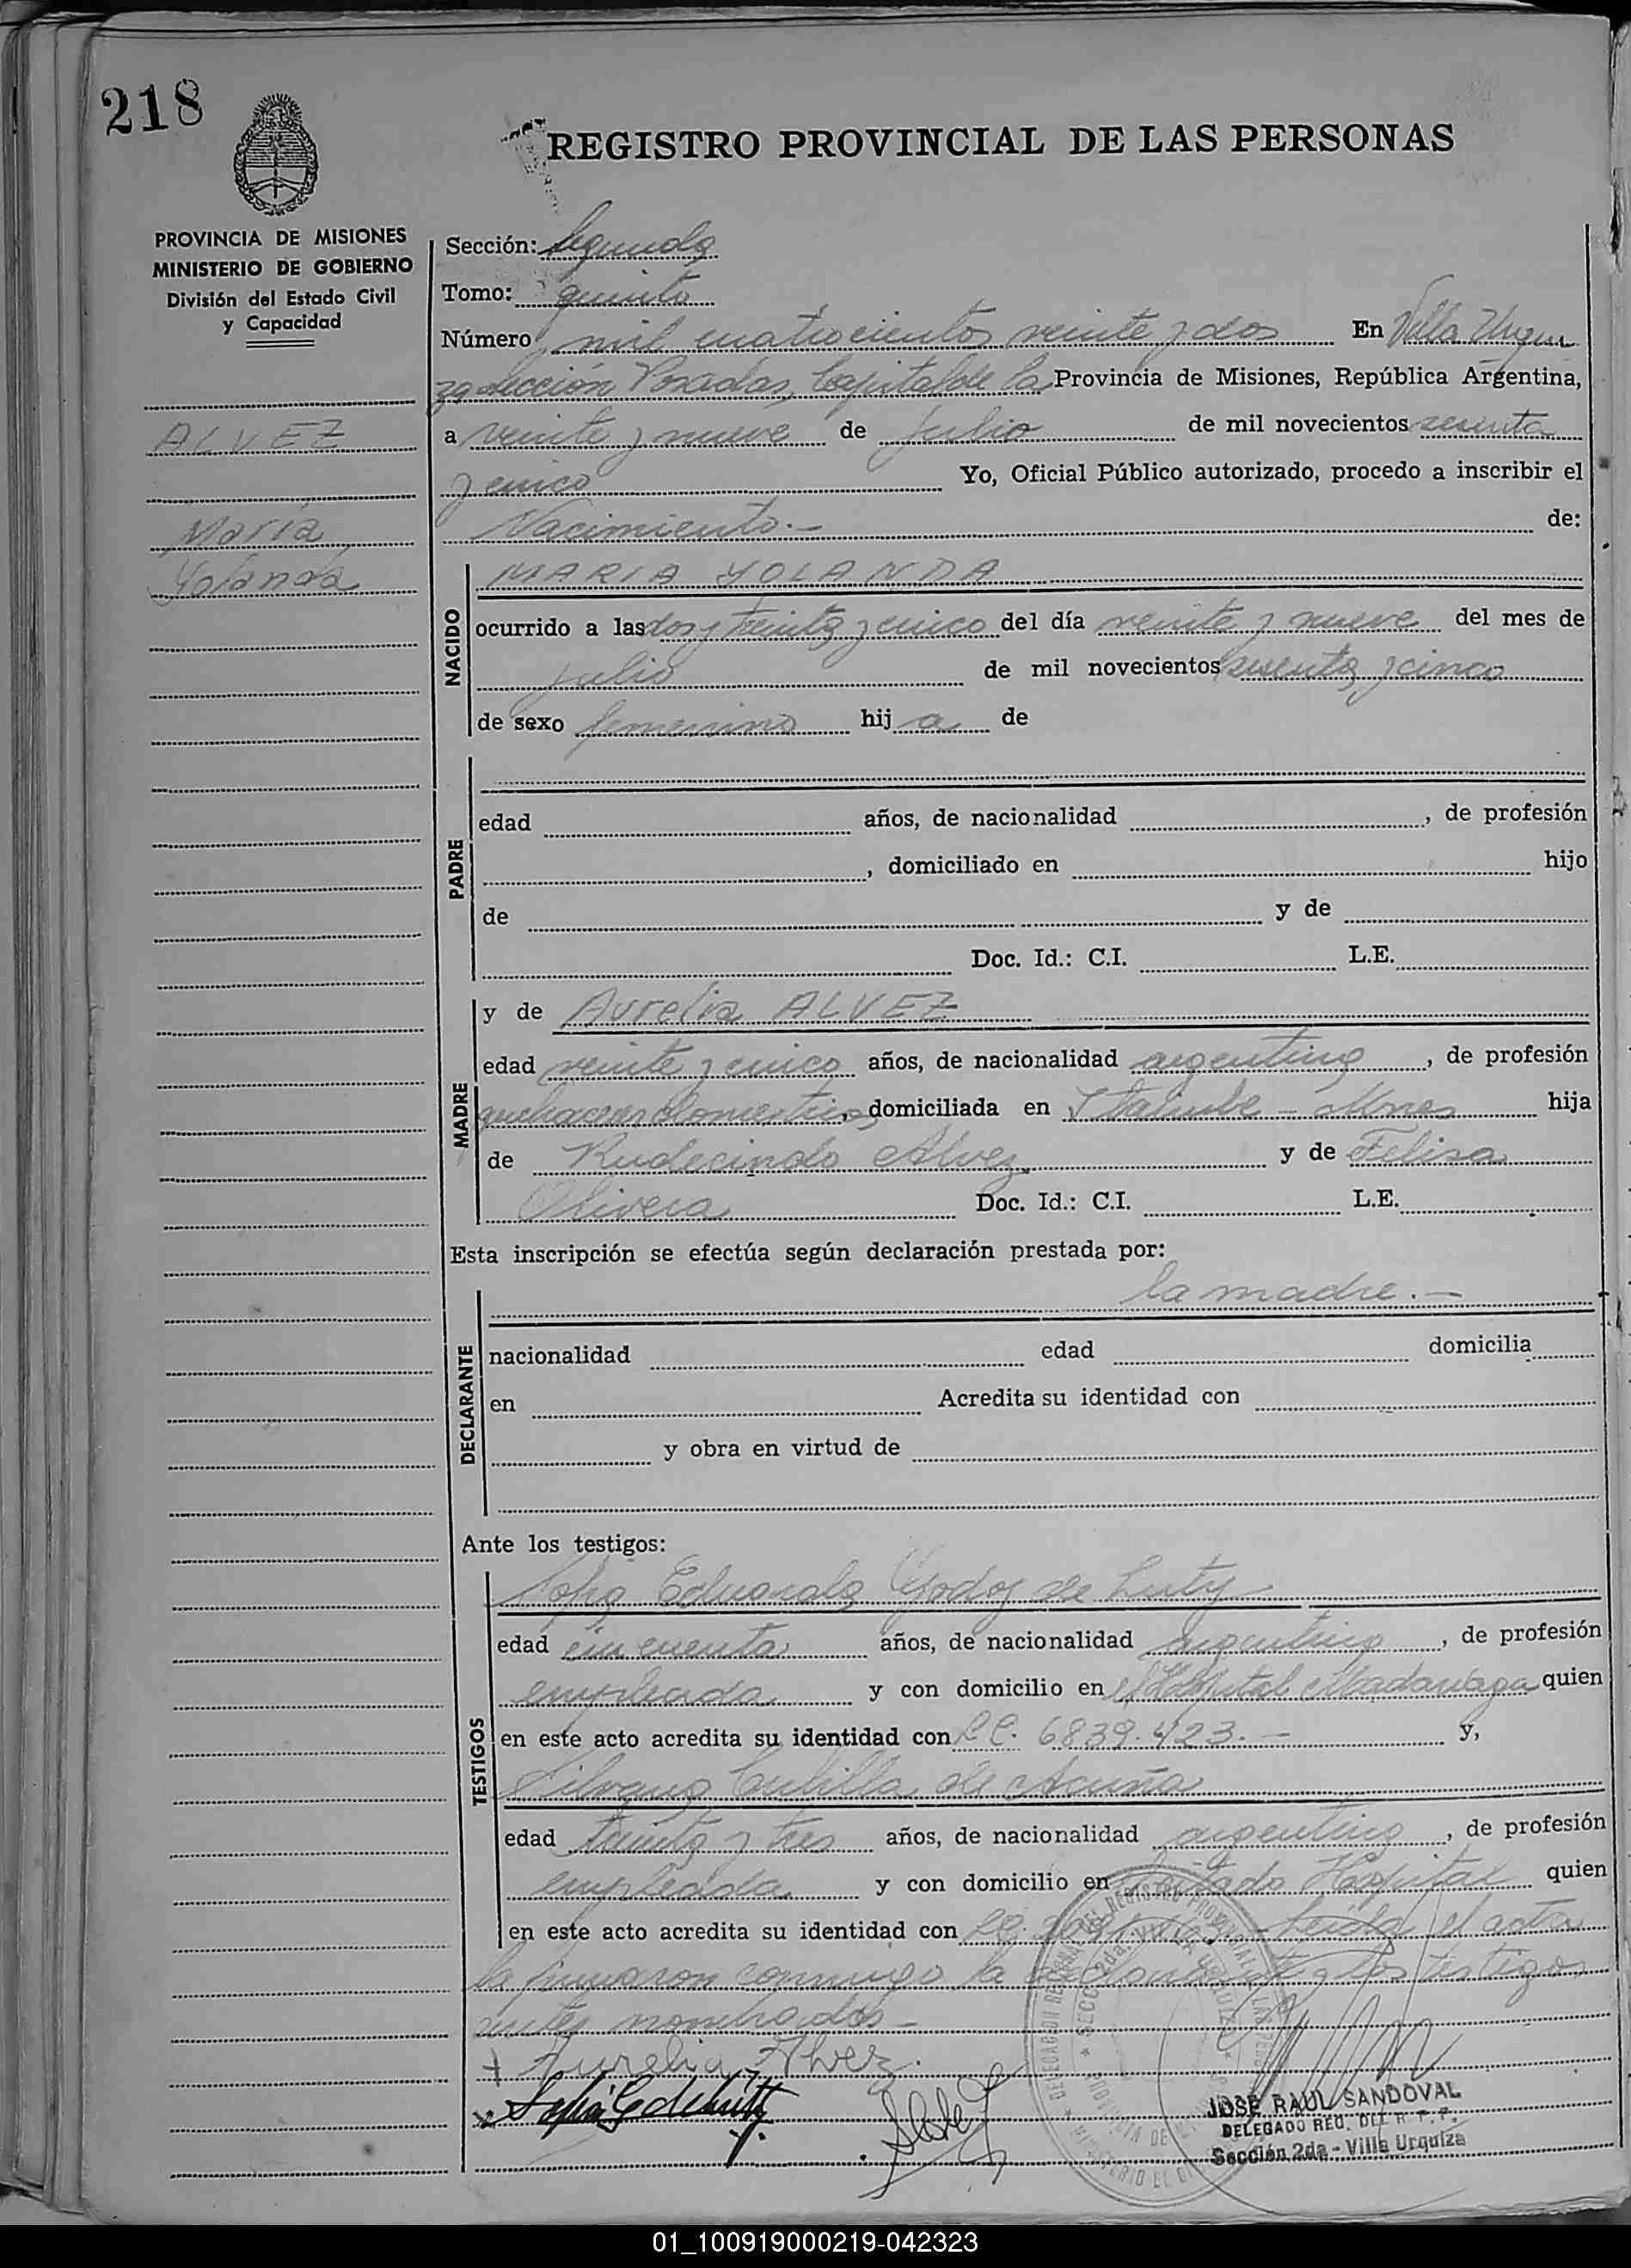 218
REGISTRO PROVINCIAL DE LAS PERSONAS
PROVINCIA DE MISIONES
MINISTERIO DE GOBIERNO
División del Estado Civil
y Capacidad
ALVEZ
María
Yolanda
Sección: Segunda
Tomo: quinto
Número mil cuatrocientos veinte y dos En Villa Urqui
za sección Posadas, Capital de la Provincia de Misiones, República Argentina,
a veinte y nueve de julio de mil novecientos sesenta
y cinco Yo, Oficial Público autorizado, procedo a inscribir el
Nacimiento.- de:
NACIDO
MARIA YOLANDA
ocurrido a las dos y treinta y cinco del día veinte y nueve del mes de
julio de mil novecientos sesenta y cinco
de sexo femenino hij a de
PADRE
edad años, de nacionalidad , de profesión
, domiciliado en hijo
de y de
Doc. Id.: C.I. L.E.
MADRE
y de Aurelia ALVEZ
edad veinte y cinco años, de nacionalidad argentina , de profesión
quehaceres domesticos, domiciliada en Itacuible - Mnes hija
de Rudecindo Alvez y de Felisa
Olivera Doc. Id.: C.I. L.E.
Esta inscripción se efectúa según declaración prestada por:
DECLARANTE
la madre.-
nacionalidad edad domicilia
en Acredita su identidad con
y obra en virtud de
Ante los testigos:
TESTIGOS
Sofia Eduarda Godoy de Luty
edad cincuenta años, de nacionalidad argentina , de profesión
empleada y con domicilio en el Hospital Madariaga quien
en este acto acredita su identidad con L.C. 6839.423.- y,
Silvana Cubilla de Acuña
edad treinta y tres años, de nacionalidad argentina , de profesión
empleada y con domicilio en citado Hospital quien
en este acto acredita su identidad con L.C. Leida el acta
la firmaron conmigo la declarante y los testigos
antes nombrados-
Aurelia Alvez.
JOSE RAUL SANDOVAL
DELEGADO REG. DEL R. P. P.
Sección 2da - Villa Urquiza
01_100919000219-042323